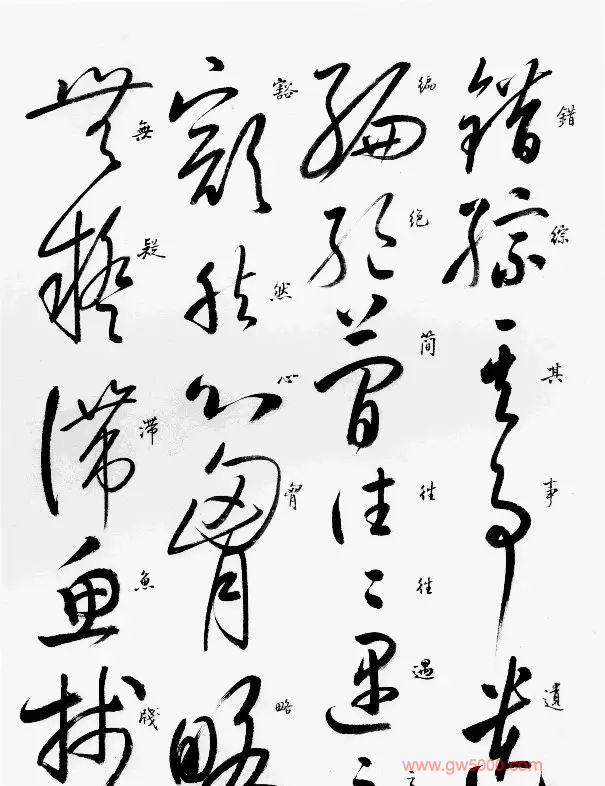 錯綜其事遺
编绝简往往遇之
豁然心胷略
無疑滞魚牋
www.gw5000.com